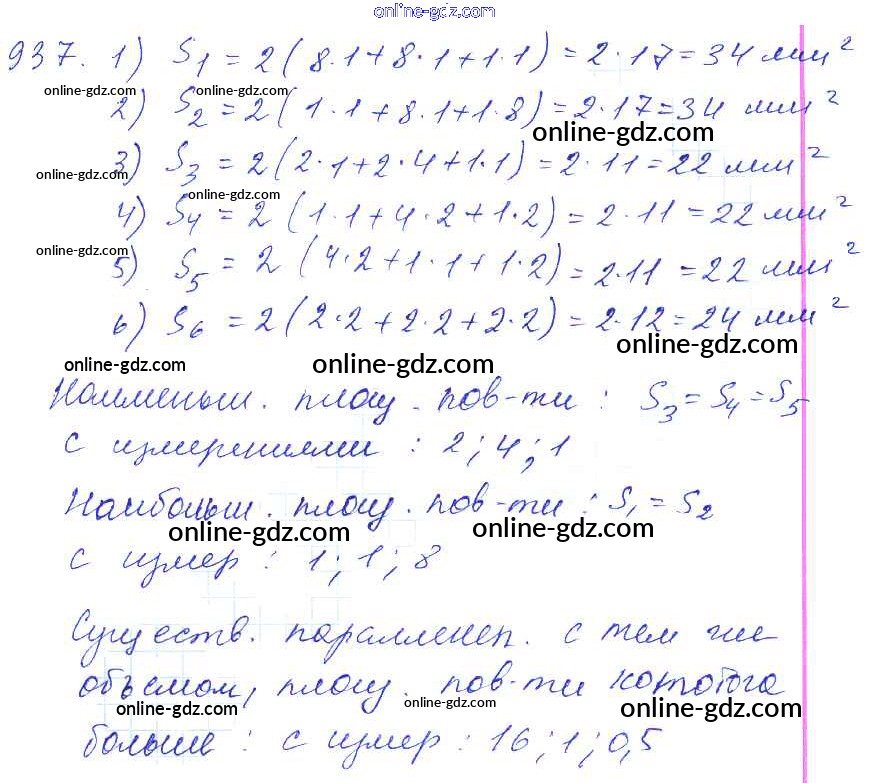 online-gdz.com
937. 1) S1 = 2(8·1+8·1+1·1) = 2·17=34 мм²
online-gdz.com
2) S2 = 2(1·1+8·1+1·8) = 2·17=34 мм²
online-gdz.com
3) S3 = 2(2·1+2·4+1·1) = 2·11=22 мм²
online-gdz.com
online-gdz.com
4) S4 = 2(1·1+4·2+1·2) = 2·11=22 мм²
online-gdz.com
5) S5 = 2(4·2+1·1+1·2) = 2·11=22 мм²
6) S6 = 2(2·2+2·2+2·2) = 2·12=24 мм²
online-gdz.com
online-gdz.com online-gdz.com
Наименьш. площ. пов-ти : S3 = S4 = S5
с измерениями : 2 ; 4 ; 1
Наибольш. площ. пов-ти : S1 = S2
online-gdz.com online-gdz.com
с измер : 1 ; 1 ; 8
Существ. параллелеп. с тем же
объемом, площ. пов-ти которого
online-gdz.com online-gdz.com online-gdz.com
больше : с измер : 16 ; 1 ; 0,5